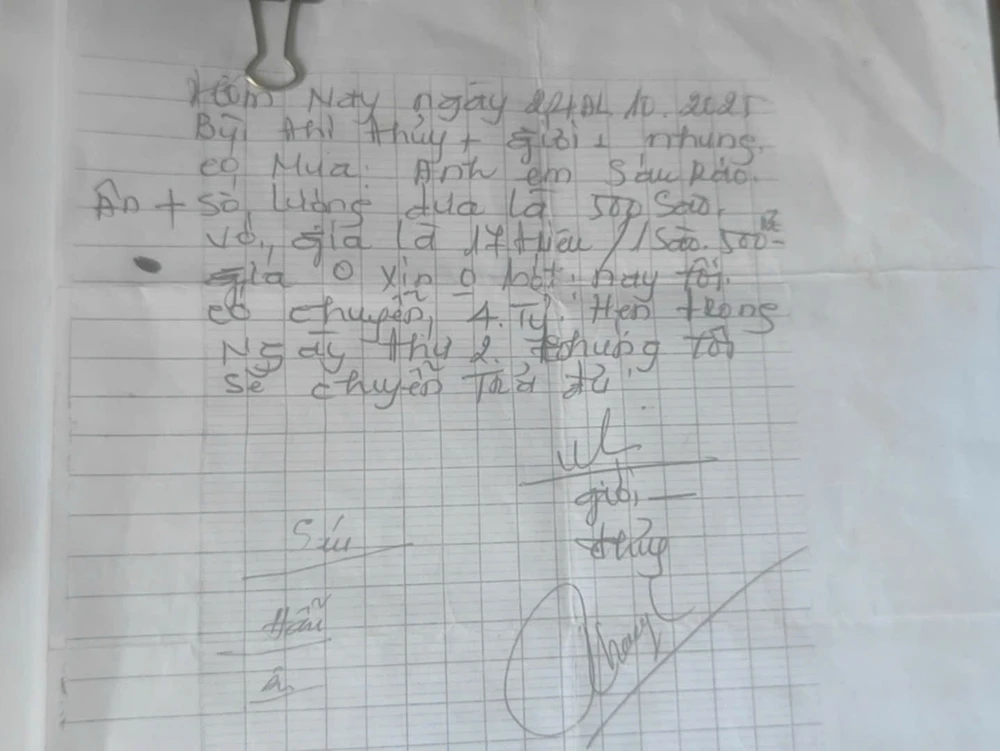 Hôm Nay ngày 24 AL 10. 2025
Bùi thi thủy + giỏi + nhung.
có Mua. Anh em Sáu Rảo.
Ân + Số, Lượng dưa là 500 Sào.
Với, giá là 17 triệu / 1 Sào. 500
giá 0 xin 0 bớt. nay tôi.
có chuyển, 4. Tỷ. Hẹn trong
Ngày thứ 2. chúng tôi
sẽ chuyển Trả đủ
giỏi
Sáu
thủy
Hẩu